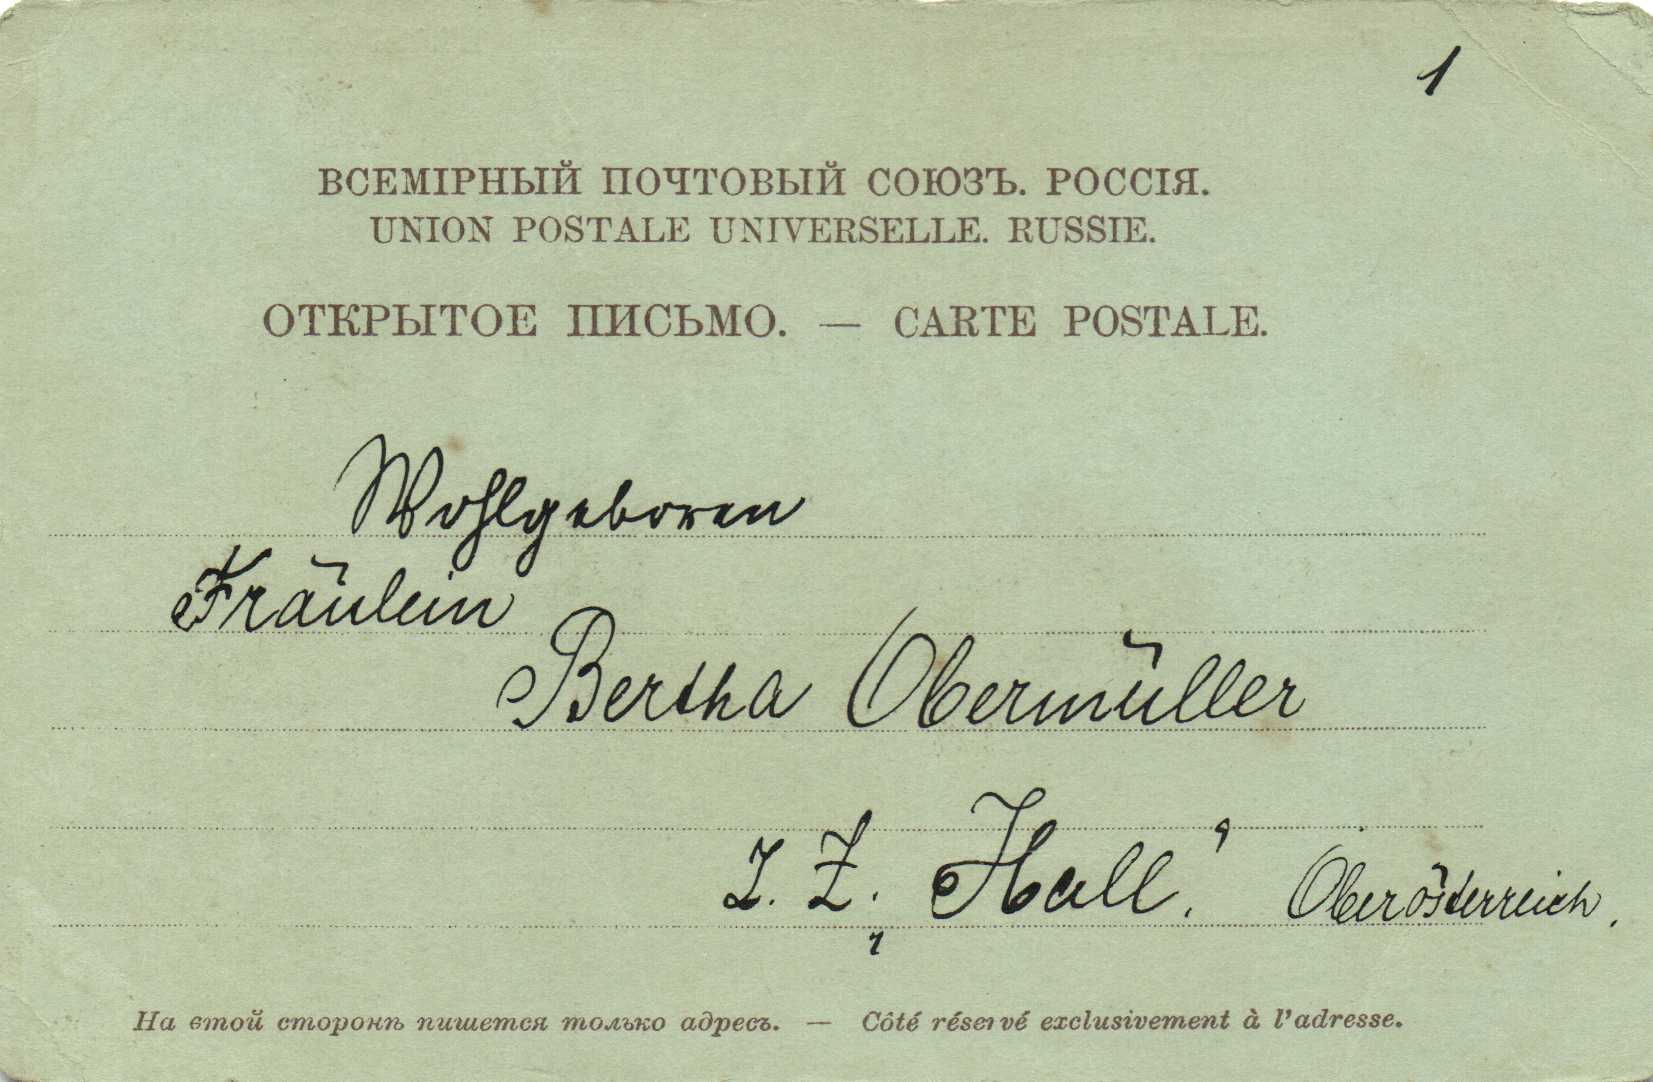 1
ВСЕМІРНЫЙ ПОЧТОВЫЙ СОЮЗЪ. РОССІЯ.
UNION POSTALE UNIVERSELLE. RUSSIE.
ОТКРЫТОЕ ПИСЬМО. — CARTE POSTALE.
Wohlgeboren
Fräulein
Bertha Obermüller
z. Z. Hall. Oberösterreich.
На этой сторонѣ пишется только адресъ. — Côté réservé exclusivement à l'adresse.